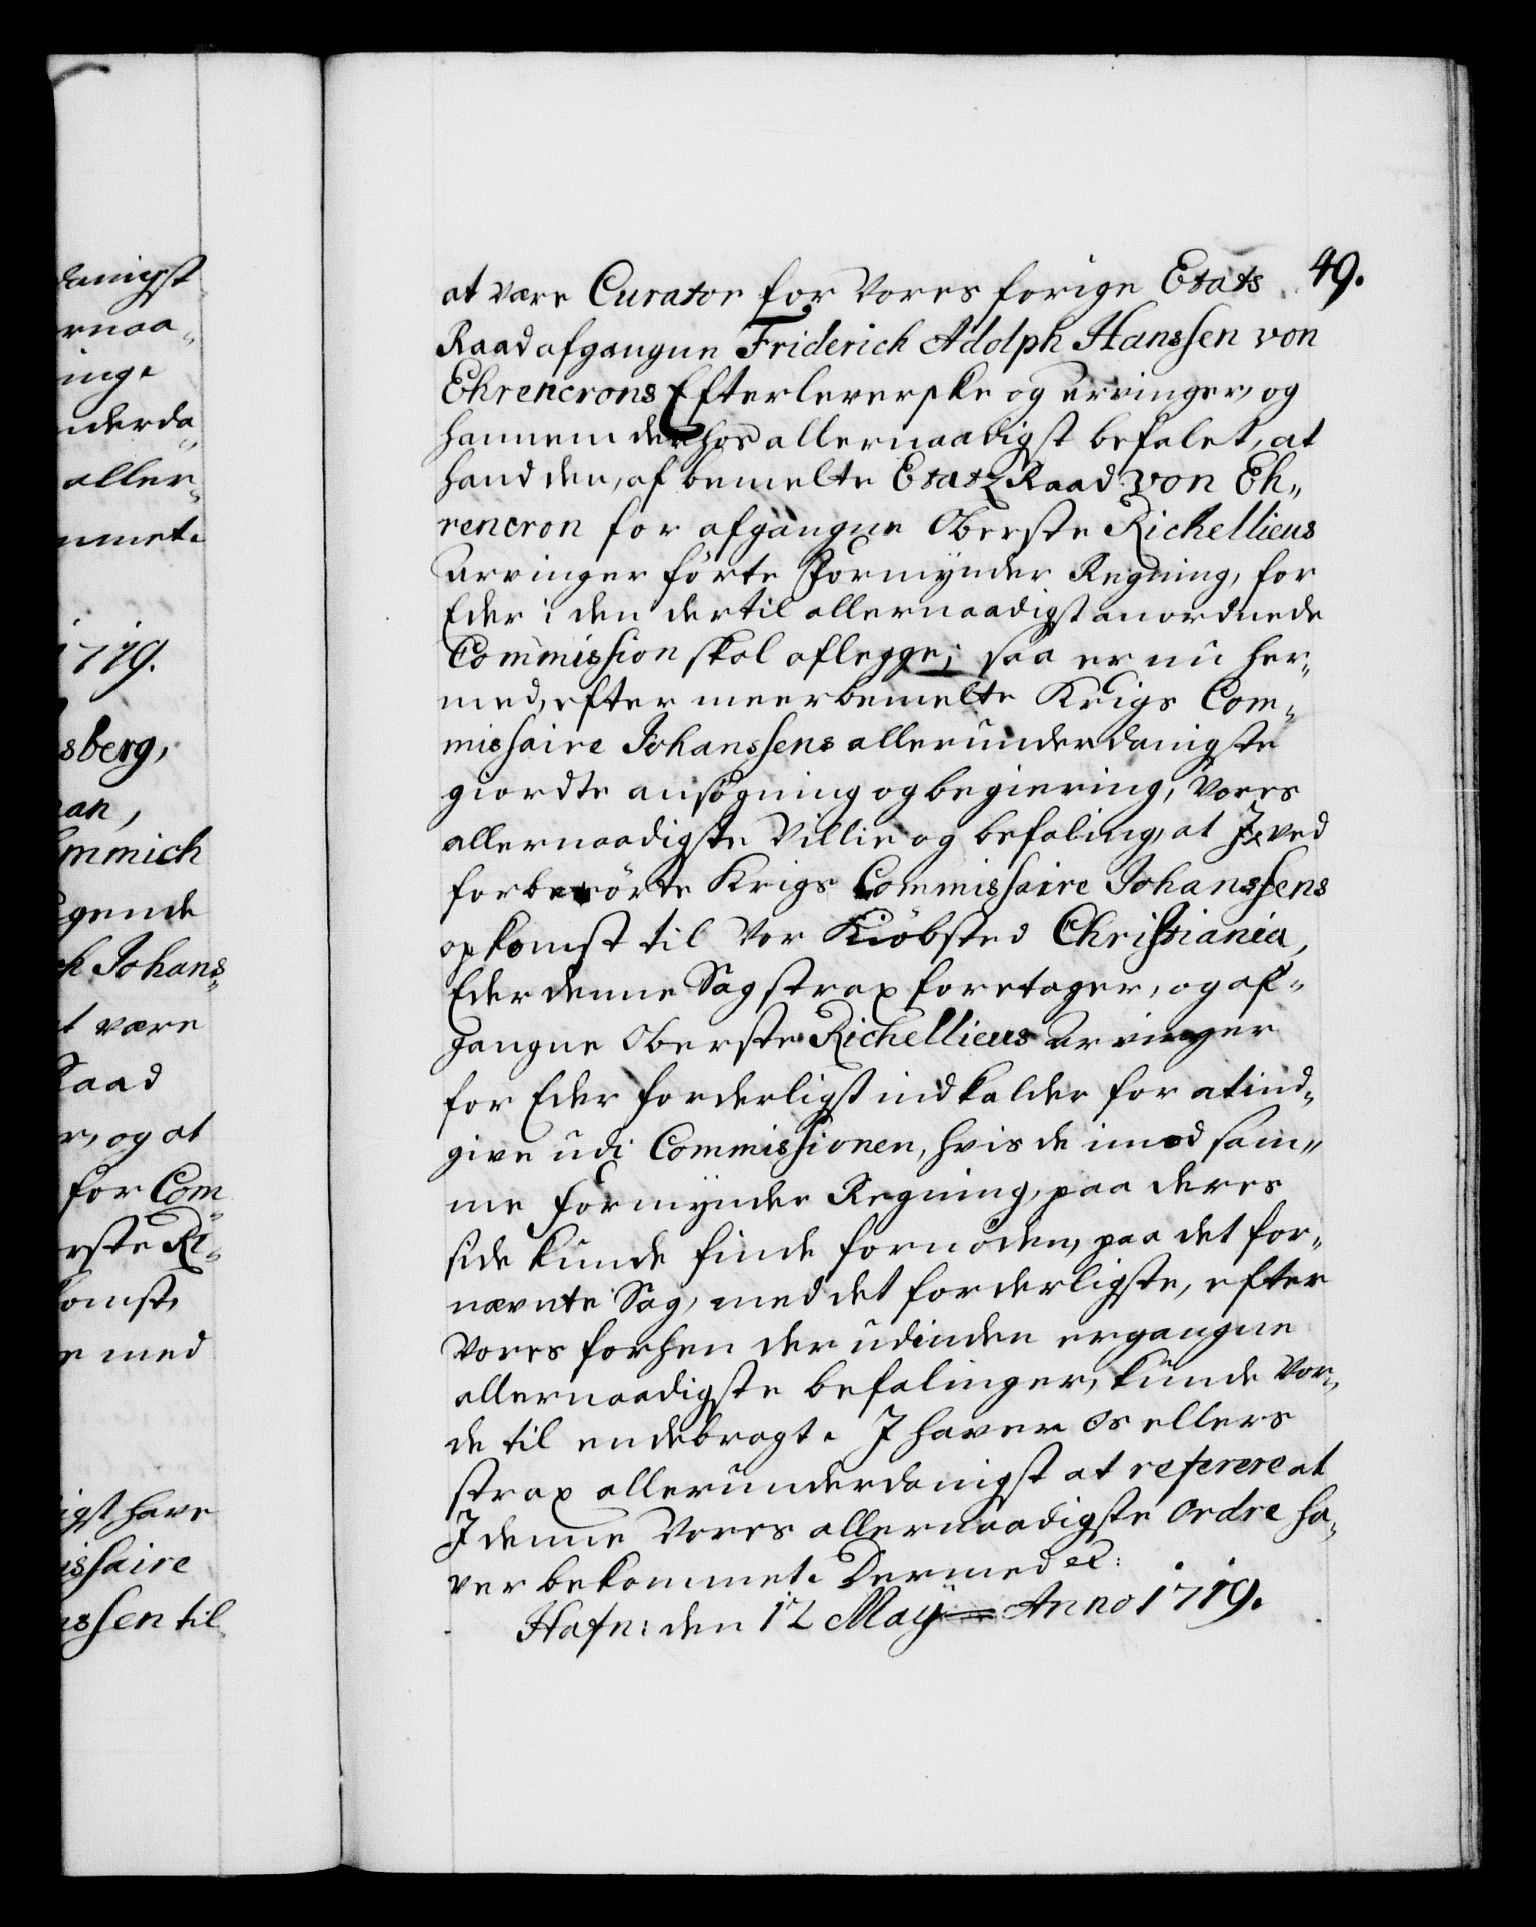 danigst
rnaa„
inge
nderda„
aller„
mmet.
1719.
sberg,
an,
mmich
gende
k Johans„
t være
Raad
r, og at
for Com„
rste Ri„
komst,
e med
igst, have
issaire
nssen til
49.
at være Curator for Vores forige Etats
Raad afgangne Friderich Adolph Hanssen von
Ehrencrons Efterleverske og arvinger, og
hannem derhos allernaadigst befalet, at
hand den, af bemelte Etatz Raad von Eh„
rencron for afgangne Oberste Richellieus
arvinger förte Formÿnder Regning, for
Eder i den dertil allernaadigst anordnede
Commission skal aflegge; saa er nu her„
med, efter meerbemelte Krigs Com„
missaire Johanssens allerunderdanigste
giordte ansögning og begiering, Vores
allernaadigste Villie og befaling, at I ved
forberörte Krigs Commissaire Johanssens
opkomst til Vor Kiöbsted Christiania,
Eder denne Sag strax foretager, og af„
gangne Oberste Richellieus arvinger
for Eder forderligst indkalder for at ind„
give udi Commissionen, hvis de imod sam„
me Formÿnder Regning, paa deres
side kunde finde fornöden, paa det for„
nævnte Sag, med det forderligste, efter
Vores forhen der udinden ergangne
allernaadigste befalinger, kunde Vor„
de til endebragt. I haver Os ellers
strax allerunderdanigst at referere at
I denne Vores allernaadigste Ordre ha„
ver bekommet. Dermed etc:
Hafn: den 12 Maÿ Anno 1719.